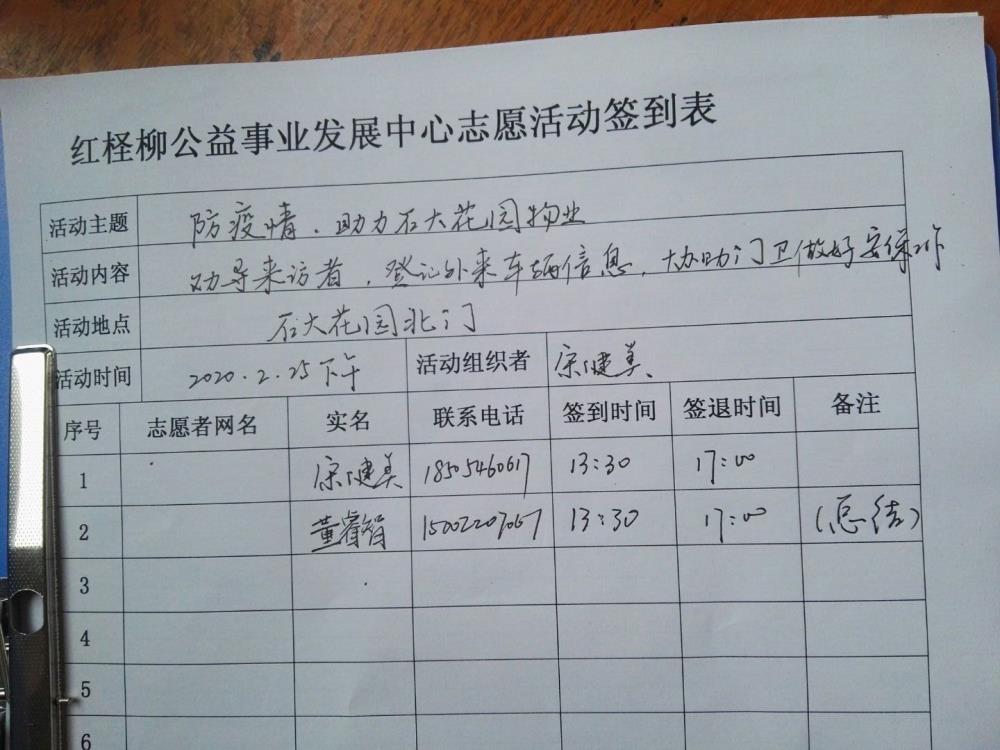 红柽柳公益事业发展中心志愿活动签到表
活动主题 防疫情.助力石大花园物业
活动内容 劝导来访者，登记外来车辆信息，协助门卫做好安保工作
活动地点 石大花园北门
活动时间 2020.2.25下午 活动组织者 宋健美
序号 志愿者网名 实名 联系电话 签到时间 签退时间 备注
1 宋健美 13:30 17:00
2 董睿娟 13:30 17:00 (总结)
3
4
5
6